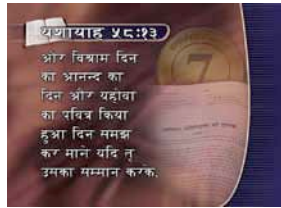 यशायाह ५८:१३
और विश्राम दिन
का आनन्द का
दिन और यहोवा
का पवित्र किया
हुआ दिन समझ
कर माने यदि तू
उसका सम्मान करके.
7